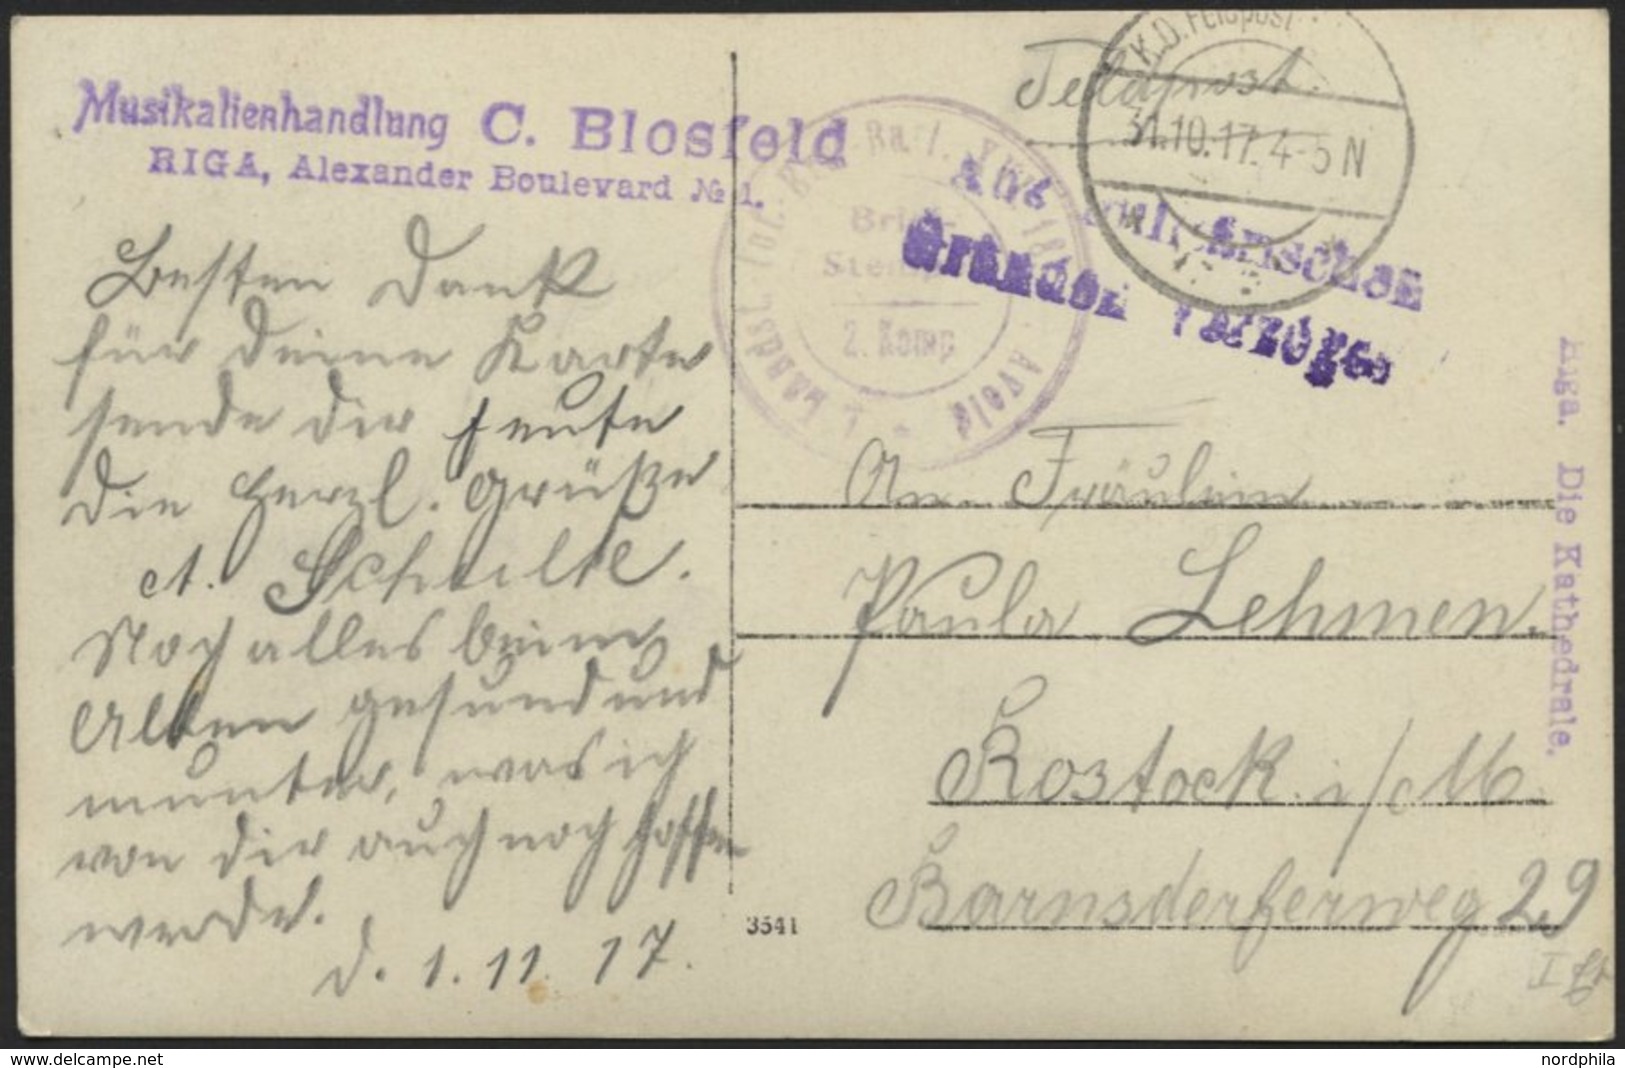 Musikalienhandlung C. Blosfeld
RIGA, Alexander Boulevard № 1.
Besten Dank
für deine Karte
sende dir heute
die herzl. Grüße
A. Schulte.
Noch alles beim
Alten gesund und
munter, was ich
von dir auch noch hoffen
werde.
d. 1. 11. 17.
3541
Feldpost.
K.D. Feldpost
31.10.17. 4-5 N
Aus militärischen
Gründen verzögert
Landst. Inf.
Brief-
Stempel
2. Komp
An Fräulein
Paula Lehmen.
Rostock i/M
Barnsdorferweg 29
I
Riga. Die Kathedrale.
www.delcampe.net
nordphila